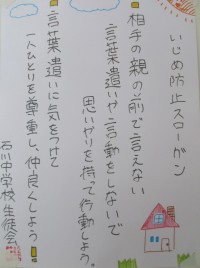 いじめ防止スローガン
相手の親の前で言えない
言葉遣いや言動をしないで
思いやりを持って行動しよう。
言葉遣いに気をつけて
一人ひとりを尊重し、仲良くしよう!
石川中学校生徒会